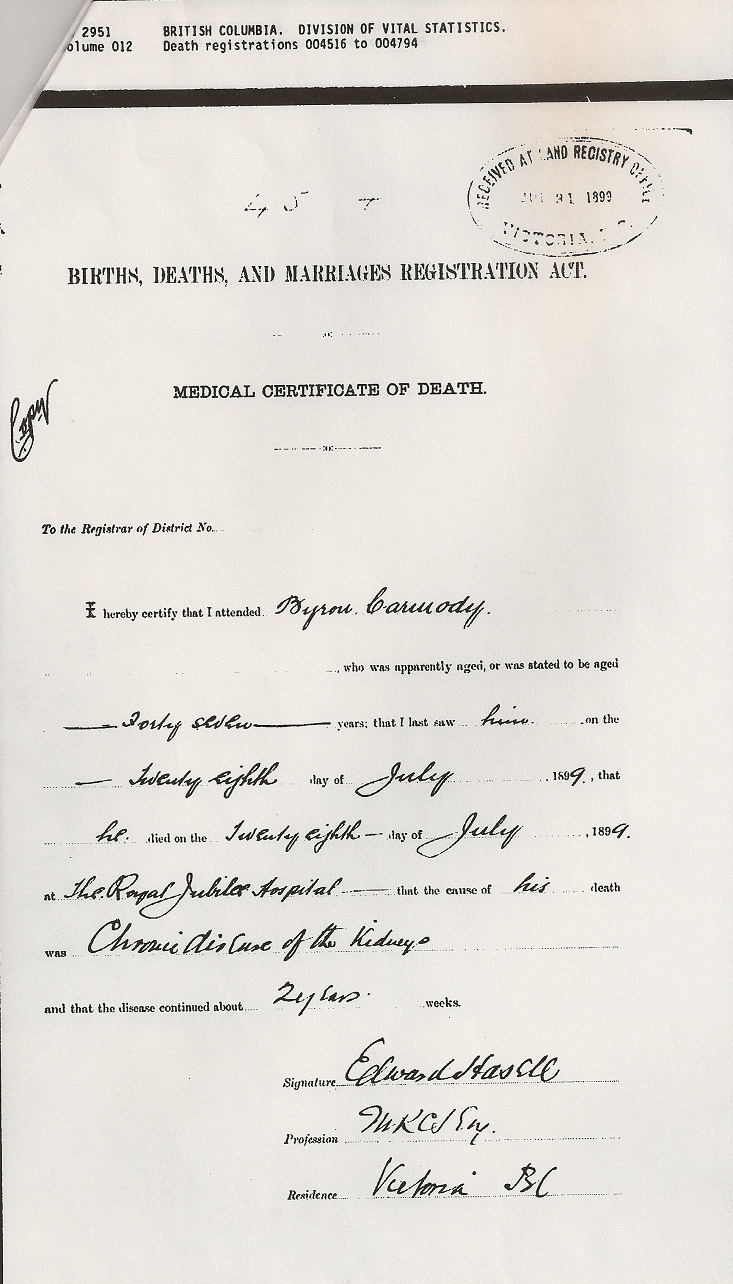 2951 BRITISH COLUMBIA. DIVISION OF VITAL STATISTICS.
olume 012 Death registrations 004516 to 004794
RECEIVED AT LAND REGISTRY OFFICE
31 1899
VICTORIA, B.C.
45
BIRTHS, DEATHS, AND MARRIAGES REGISTRATION ACT.
MEDICAL CERTIFICATE OF DEATH.
Copy
To the Registrar of District No.
I hereby certify that I attended Byron Carmody.
, who was apparently aged, or was stated to be aged
Forty seven years; that I last saw him on the
Twenty eighth day of July , 1899, that
he died on the Twenty eighth day of July , 1899.
at The Royal Jubilee Hospital that the cause of his death
was Chronic disease of the Kidneys
and that the disease continued about 2 years. weeks.
Signature Edward Hasell
Profession MRCS Eng.
Residence Victoria BC